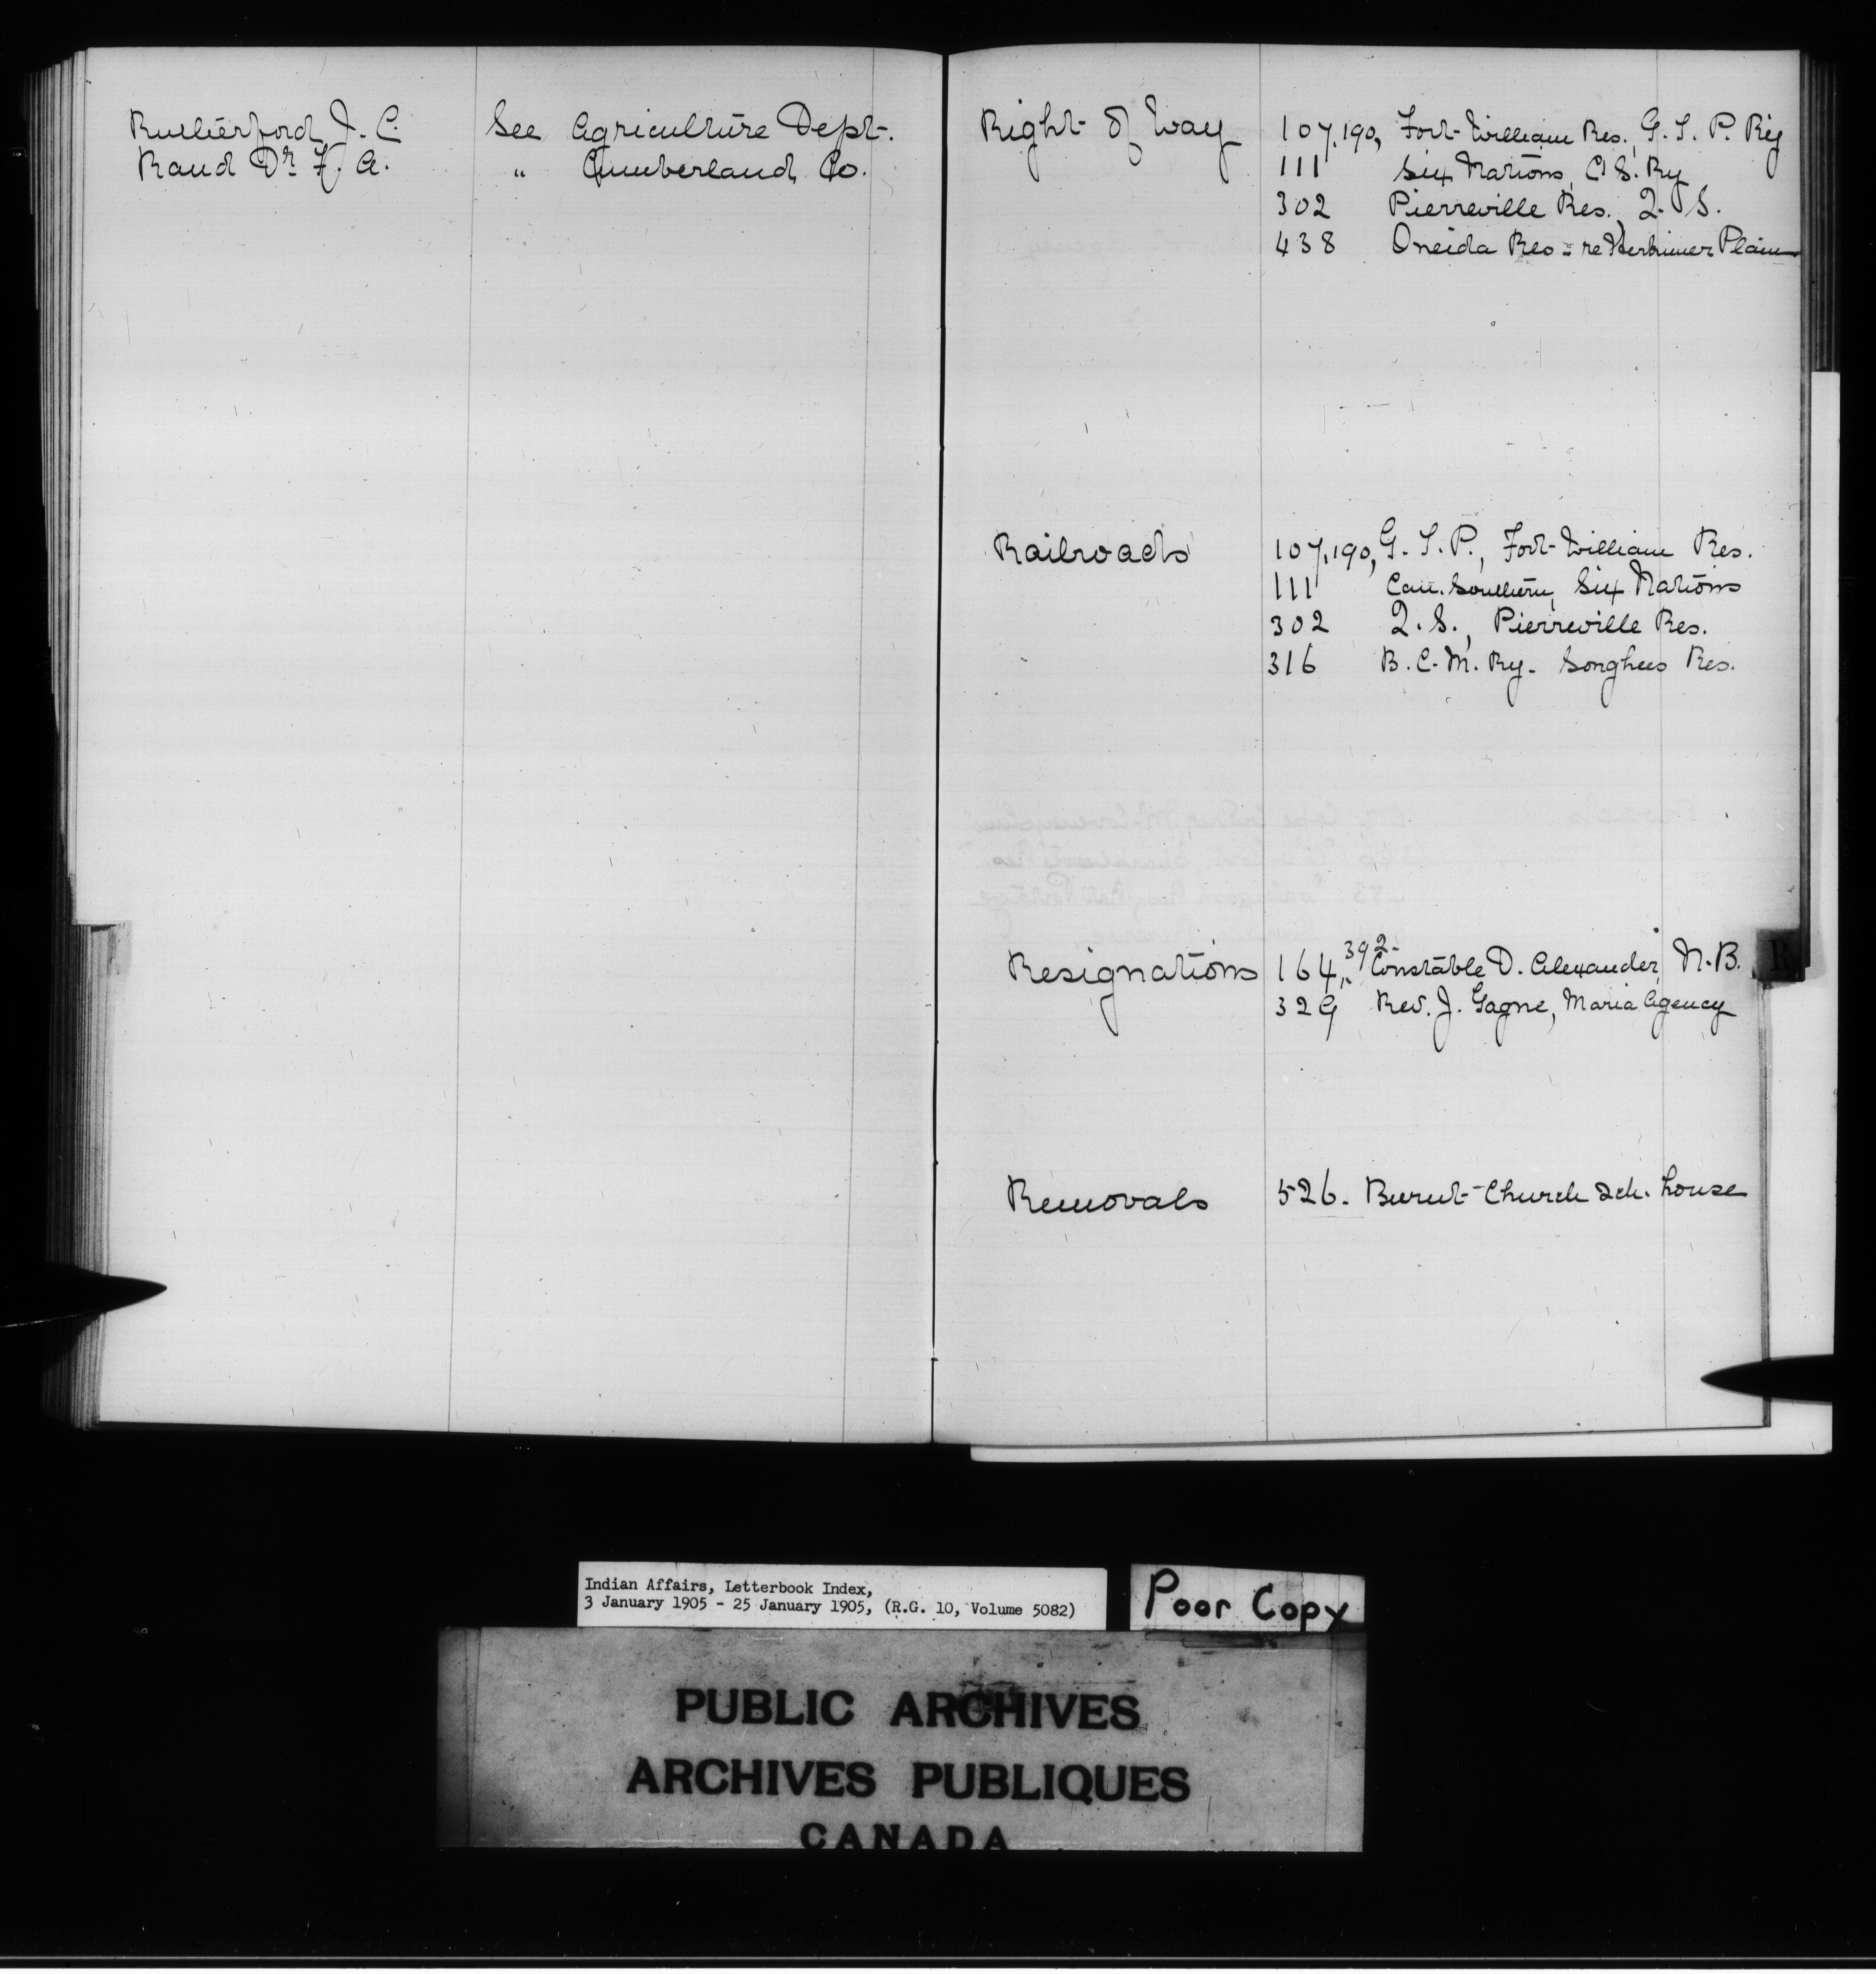 Rutherford J. C. See Agriculture Dept.
Rand Dr F. A. " Cumberland Co.
Right of Way 107,190, Fort William Res., G. T. P. Ry
111 Six Nations, C S. Ry
302 Pierreville Res., Q. S.
438 Oneida Res - re Herkimer Plain
Railroads 107,190, G. T. P., Fort William Res.
111 Can. Southern, Six Nations
302 Q. S., Pierreville Res.
316 B. C. M. Ry. Songhees Res.
Resignations 164, 392. Constable D. Alexander, N. B.
329 Rev. J. Gagne, Maria Agency
R
Removals 526. Burnt Church sch. house
Indian Affairs, Letterbook Index,
3 January 1905 - 25 January 1905, (R.G. 10, Volume 5082)
Poor Copy
PUBLIC ARCHIVES
ARCHIVES PUBLIQUES
CANADA